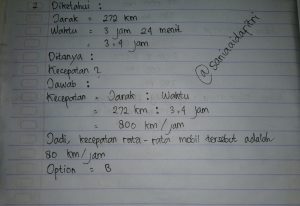 2 Diketahui :
Jarak = 272 km
Waktu = 3 jam 24 menit
= 3.4 jam
Ditanya :
Kecepatan ?
Jawab :
Kecepatan = Jarak : Waktu
= 272 km : 3.4 jam
= 800 km/jam
Jadi, kecepatan rata-rata mobil tersebut adalah
80 km/jam
Option = B